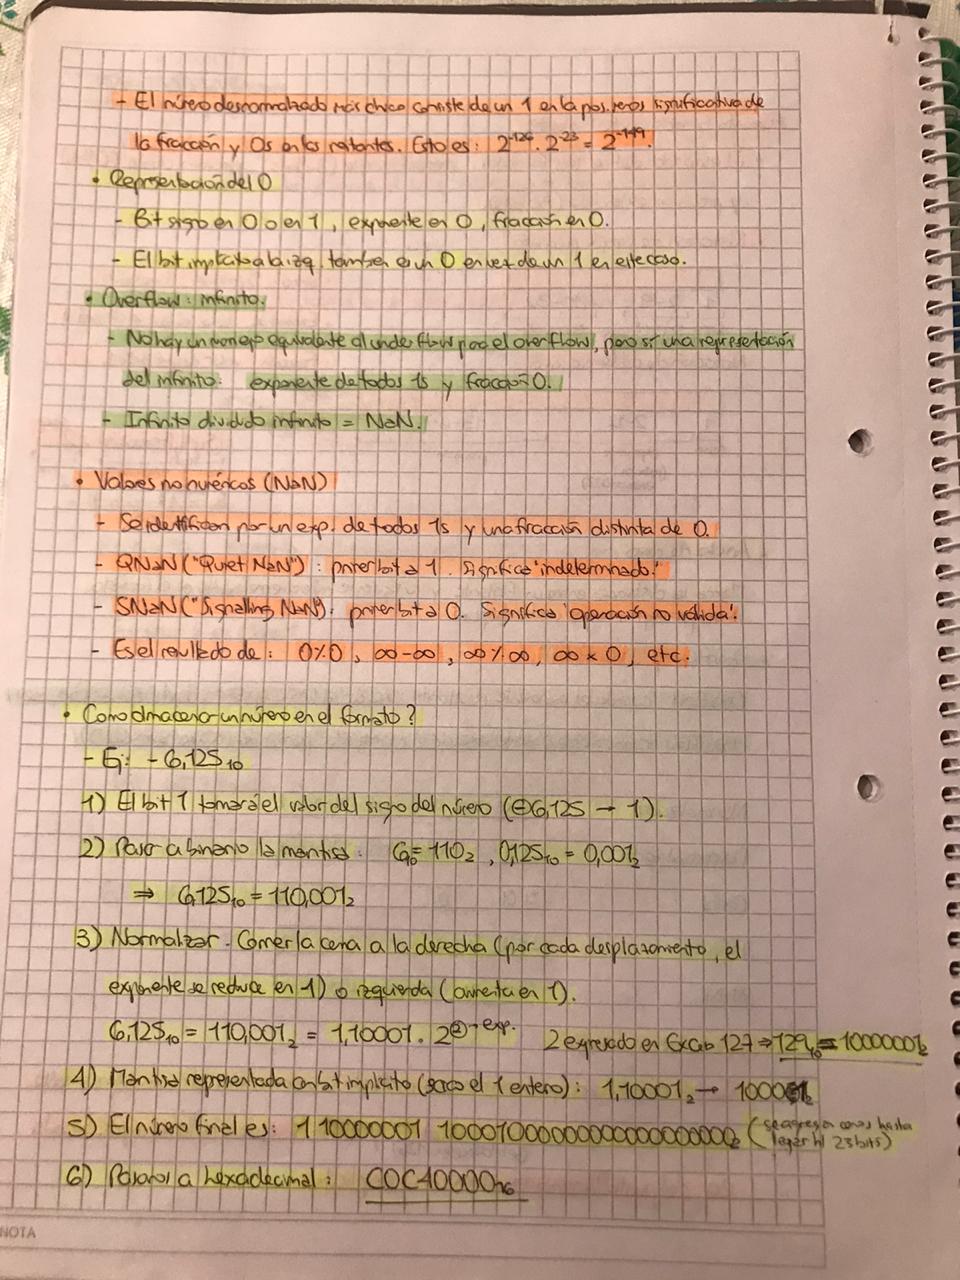 - El número desnormalizado más chico consiste de un 1 en la pos. menos significativa de
la fracción y 0s en los restantes. Esto es: 2^-126 . 2^-23 = 2^-149.
• Representación del 0
- Bit signo en 0 o en 1, exponente en 0, fracción en 0.
- El bit implícito a la izq. también es un 0 en vez de un 1 en este caso.
• Overflow: infinito.
- No hay un manejo equivalente al underflow para el overflow, pero sí una representación
del infinito: exponente de todos 1s y fracción 0.
- Infinito dividido infinito = NaN.
• Valores no numéricos (NaN)
- Se identifican por un exp. de todos 1s y una fracción distinta de 0.
- QNaN ("Quiet NaN"): primer bit a 1. Significa "indeterminado."
- SNaN ("Signalling NaN"): primer bit a 0. Significa 'operación no válida'.
- Es el resultado de: 0%0, ∞-∞, ∞%∞, ∞×0, etc.
• Como almacenar un número en el formato?
- Ej: -6,125₁₀
1) El bit 1 tomará el valor del signo del número (⊖6,125 → 1).
2) Pasar a binario la mantisa: 6₁₀=110₂, 0,125₁₀=0,001₂
⇒ 6,125₁₀=110,001₂
3) Normalizar. Correr la coma a la derecha (por cada desplazamiento, el
exponente se reduce en 1) o izquierda (aumenta en 1).
6,125₁₀=110,001₂=1,10001.2^② → exp. 2 expresado en Exceso 127 ⇒ 129₁₀=10000001₂
4) Mantisa representada con bit implícito (saco el 1 entero): 1,10001₂ → 10001₂
5) El número final es: 1 10000001 10001000000000000000000₂ (se agregan ceros hasta
llegar a 23 bits)
6) Pasarlo a hexadecimal: C0C40000₁₆
NOTA